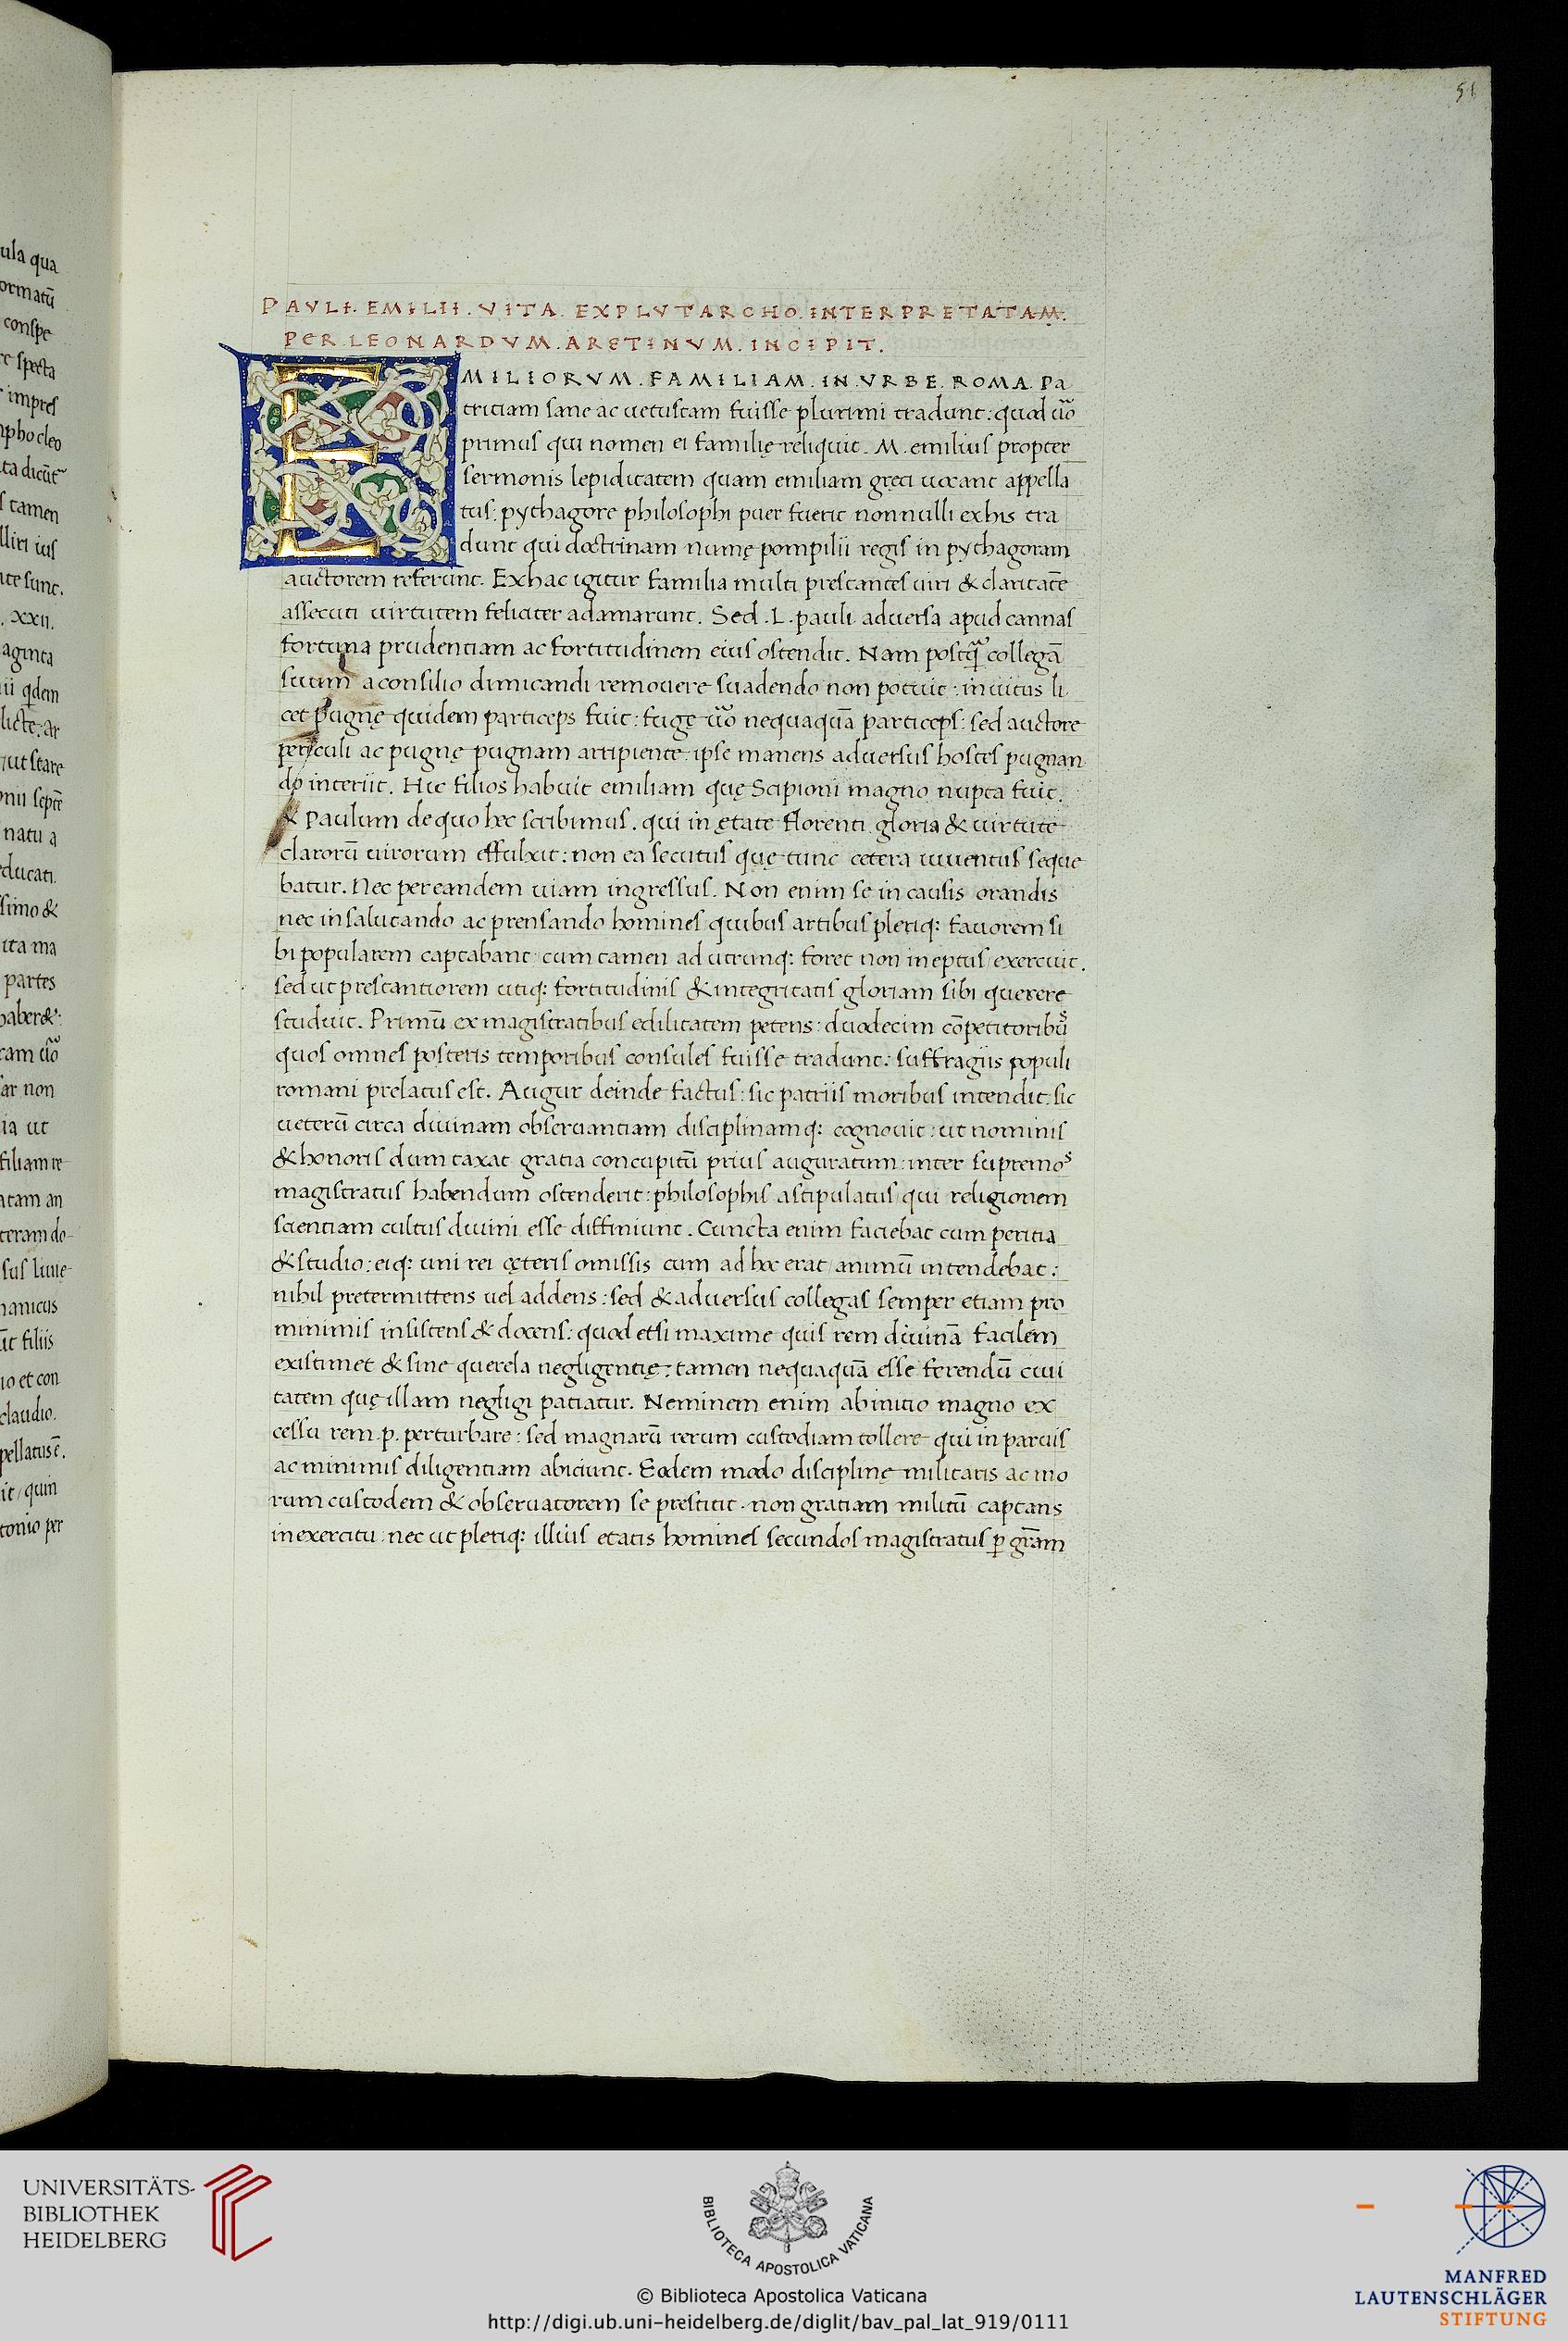 51
PAVLI. EMILII. VITA. EXPLVTARCHO. INTERPRETATAM.
PER. LEONARDVM. ARETINVM. INCIPIT.
EMILIORVM. FAMILIAM. IN. VRBE. ROMA. Pa
triciam sane ac uetustam fuisse plurimi tradunt: quod uo
primus qui nomen ei familię reliquit. M. emilius propter
sermonis lepiditatem quam emiliam gręci uocant appella
tus: pythagore philosophi puer fuerit nonnulli exhis tra
dunt qui doctrinam numę pompilii regis in pythagoram
auctorem referunt. Exhac igitur familia multi prestantes uiri & claritate
assecuti uirtutem feliciter adamarunt. Sed .L. pauli aduersa apud cannas
fortuna prudentiam ac fortitudinem eius ostendit. Nam postq̃ collegã
suum aconsilio dimicandi remouere suadendo non potuit: inuitus li
cet pugnę quidem particeps fuit: fugę uo nequaquã particeps: sed auctore
periculi ac pugnę pugnam arripiente: ipse manens aduersus hostes pugnan
do interiit. Hic filios habuit emiliam quę Scipioni magno nupta fuit.
& Paulum dequo hec scribimus. qui in ętate florenti gloria & uirtute
clarorũ uirorum effulxit: non ea secutus quę tunc cetera iuuentus seque
batur. Nec pereandem uiam ingressus. Non enim se in causis orandis
nec insalutando ac prensando homines quibus artibus pleriq: fauorem si
bi popularem captabant: cum tamen ad utrunq: foret non ineptus exercuit.
sed ut prestantiorem utiq: fortitudinis & integritatis gloriam sibi querere
studuit. Primũ ex magistratibus edilitatem petens: duodecim cõpetitoribus
quos omnes posteris temporibus consules fuisse tradunt: suffragiis populi
romani prelatus est. Augur deinde factus: sic patriis moribus intendit: sic
ueterũ circa diuinam obseruantiam disciplinamq: cognouit: ut nominis
& honoris dum taxat gratia concupitũ prius auguratum: inter supremos
magistratus habendum ostenderit: philosophis astipulatus qui religionem
scientiam cultus diuini esse diffiniunt. Cuncta enim faciebat cum peritia
& studio: eiq: uni rei cęteris omissis cum ad hoc erat/animũ intendebat:
nihil pretermittens uel addens: sed & aduersus collegas semper etiam pro
minimis insistens & docens: quod etsi maxime quis rem diuinã facilem
existimet & sine querela negligentię: tamen nequaquã esse ferendũ ciui
tatem quę illam negligi patiatur. Neminem enim abinitio magno ex
cessu rem .p. perturbare: sed magnarũ rerum custodiam tollere qui in paruis
ac minimis diligentiam abiciunt. Eodem modo disciplinę militaris ac mo
rum custodem & obseruatorem se prestitit. non gratiam militũ captans
inexercitu: nec ut pleriq: illius etatis homines secundos magistratus p̱ gr̃am
UNIVERSITÄTS-
BIBLIOTHEK
HEIDELBERG
BIBLIOTECA APOSTOLICA VATICANA
© Biblioteca Apostolica Vaticana
http://digi.ub.uni-heidelberg.de/diglit/bav_pal_lat_919/0111
MANFRED
LAUTENSCHLÄGER
STIFTUNG